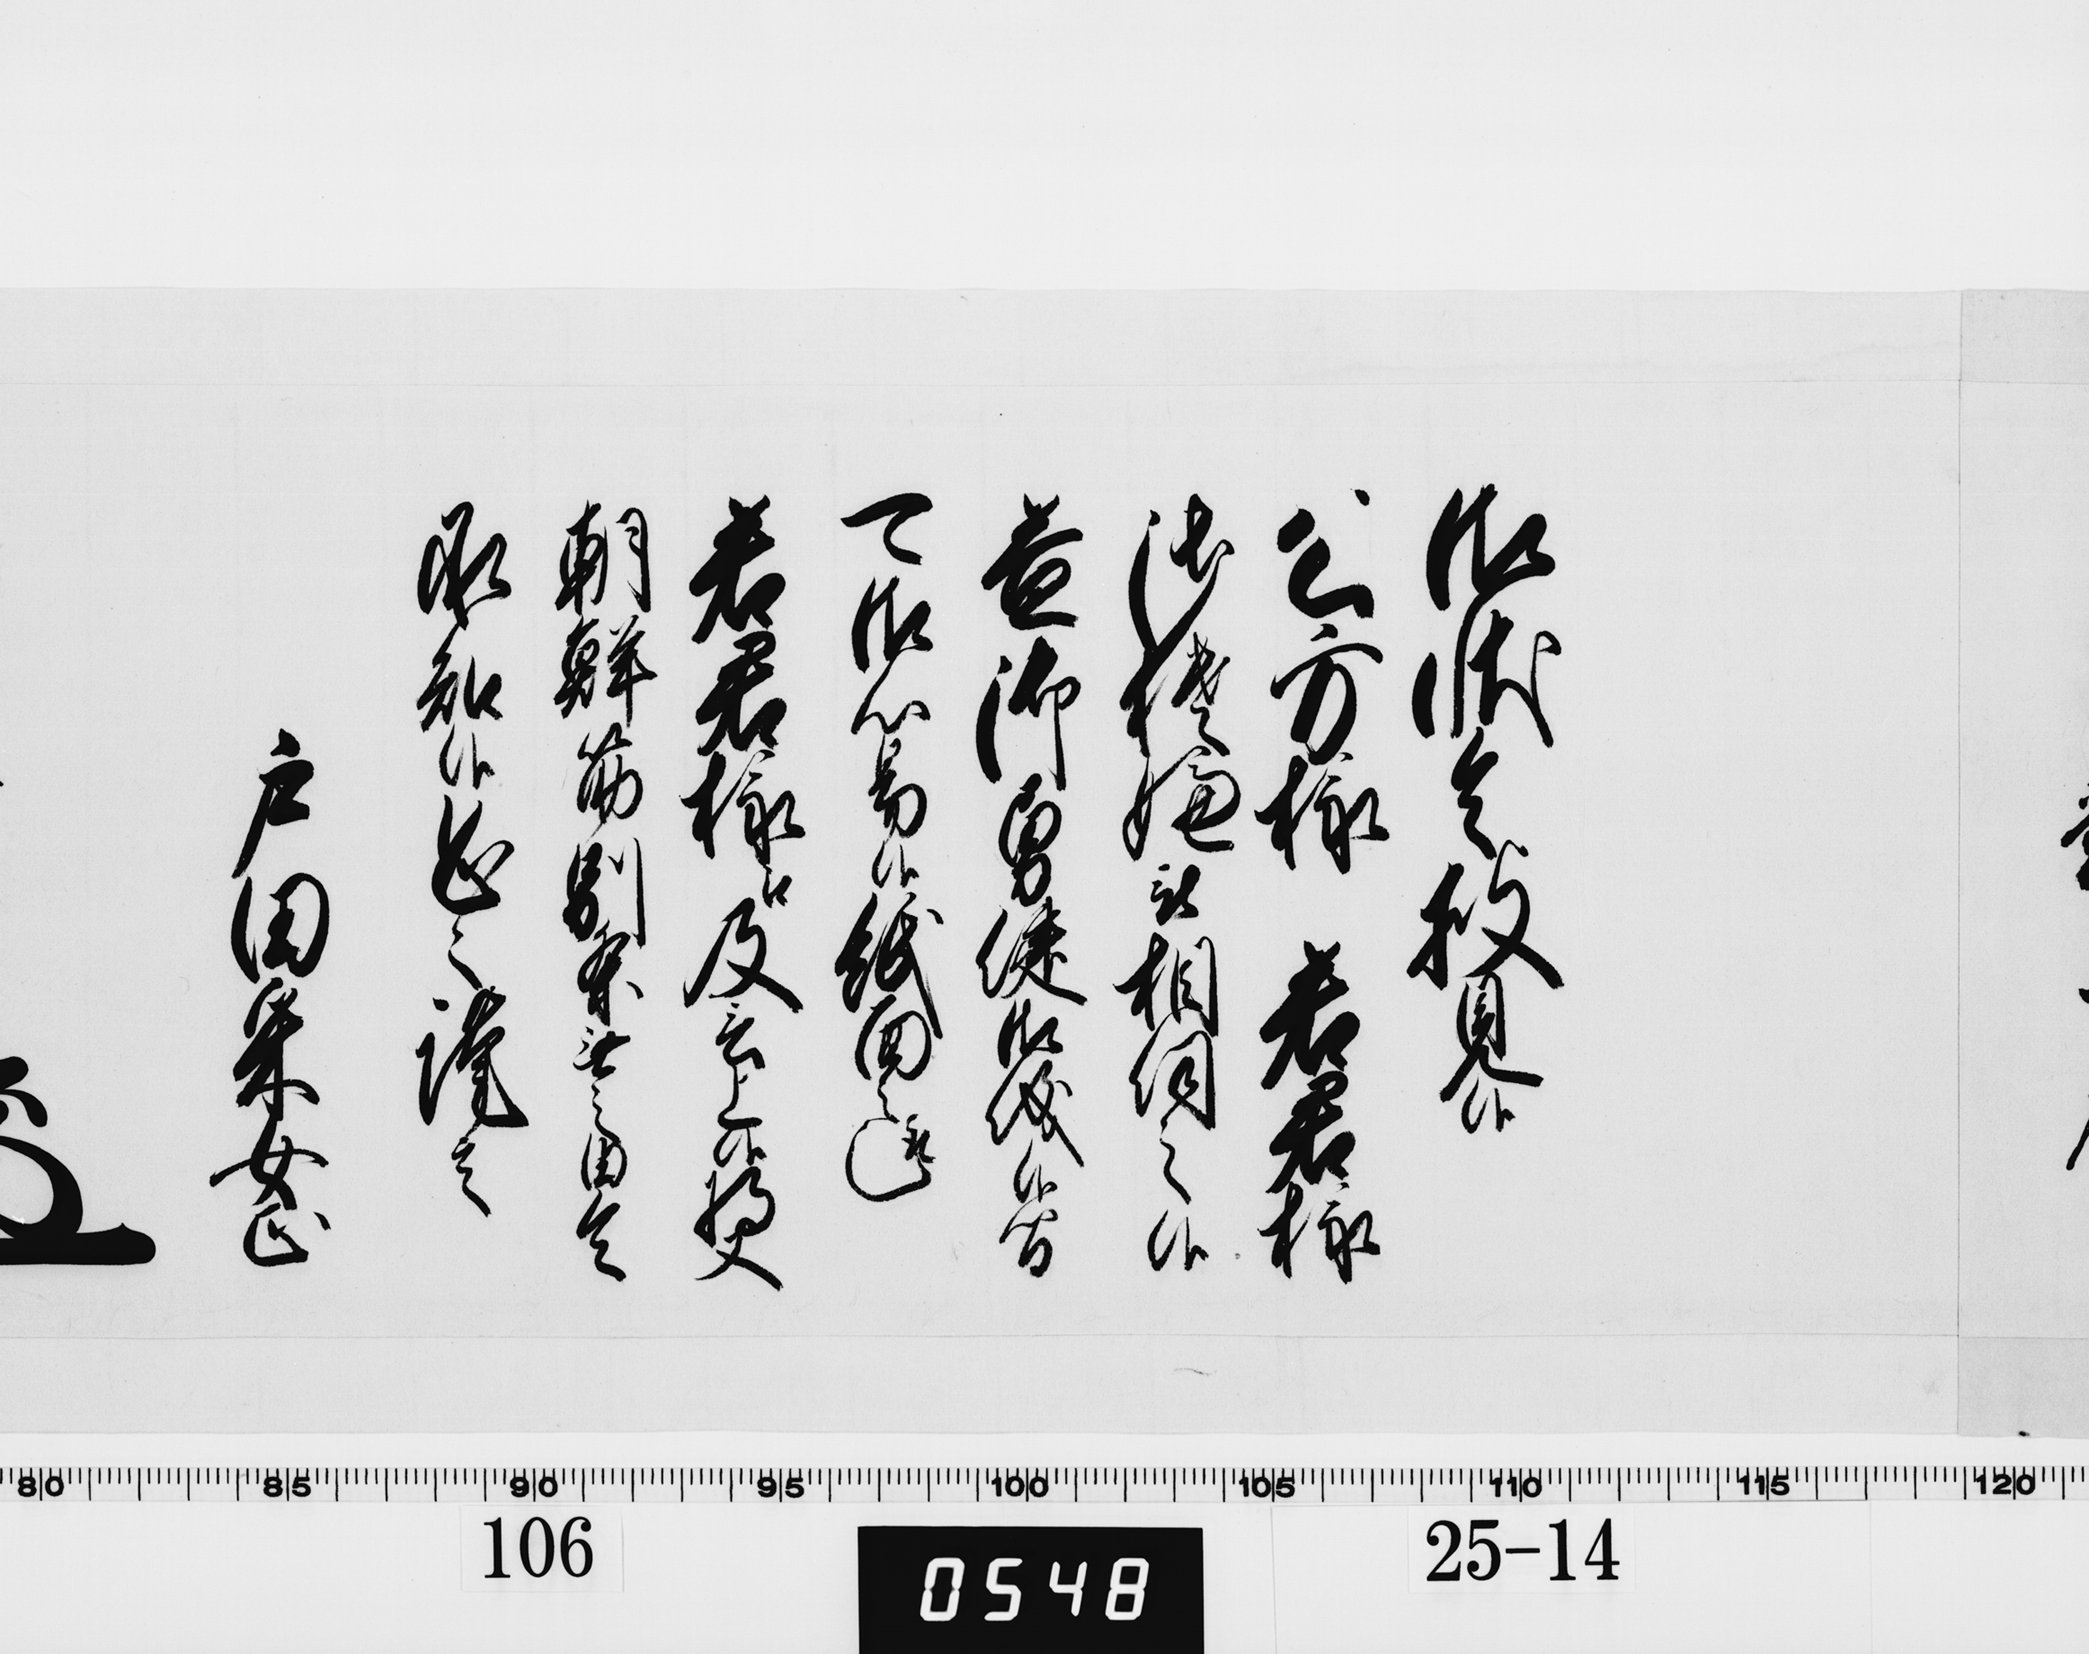 御状令披見候
公方様 若君様
御機嫌被相伺之候
益御勇健御儀候間
可御心易候紙面之趣
若君様江及言上候将又
朝鮮筋別条無之由令
承知候恐々謹言
戸田采女正
80 85 90 95 100 105 110 115 120
106
0548
25-14